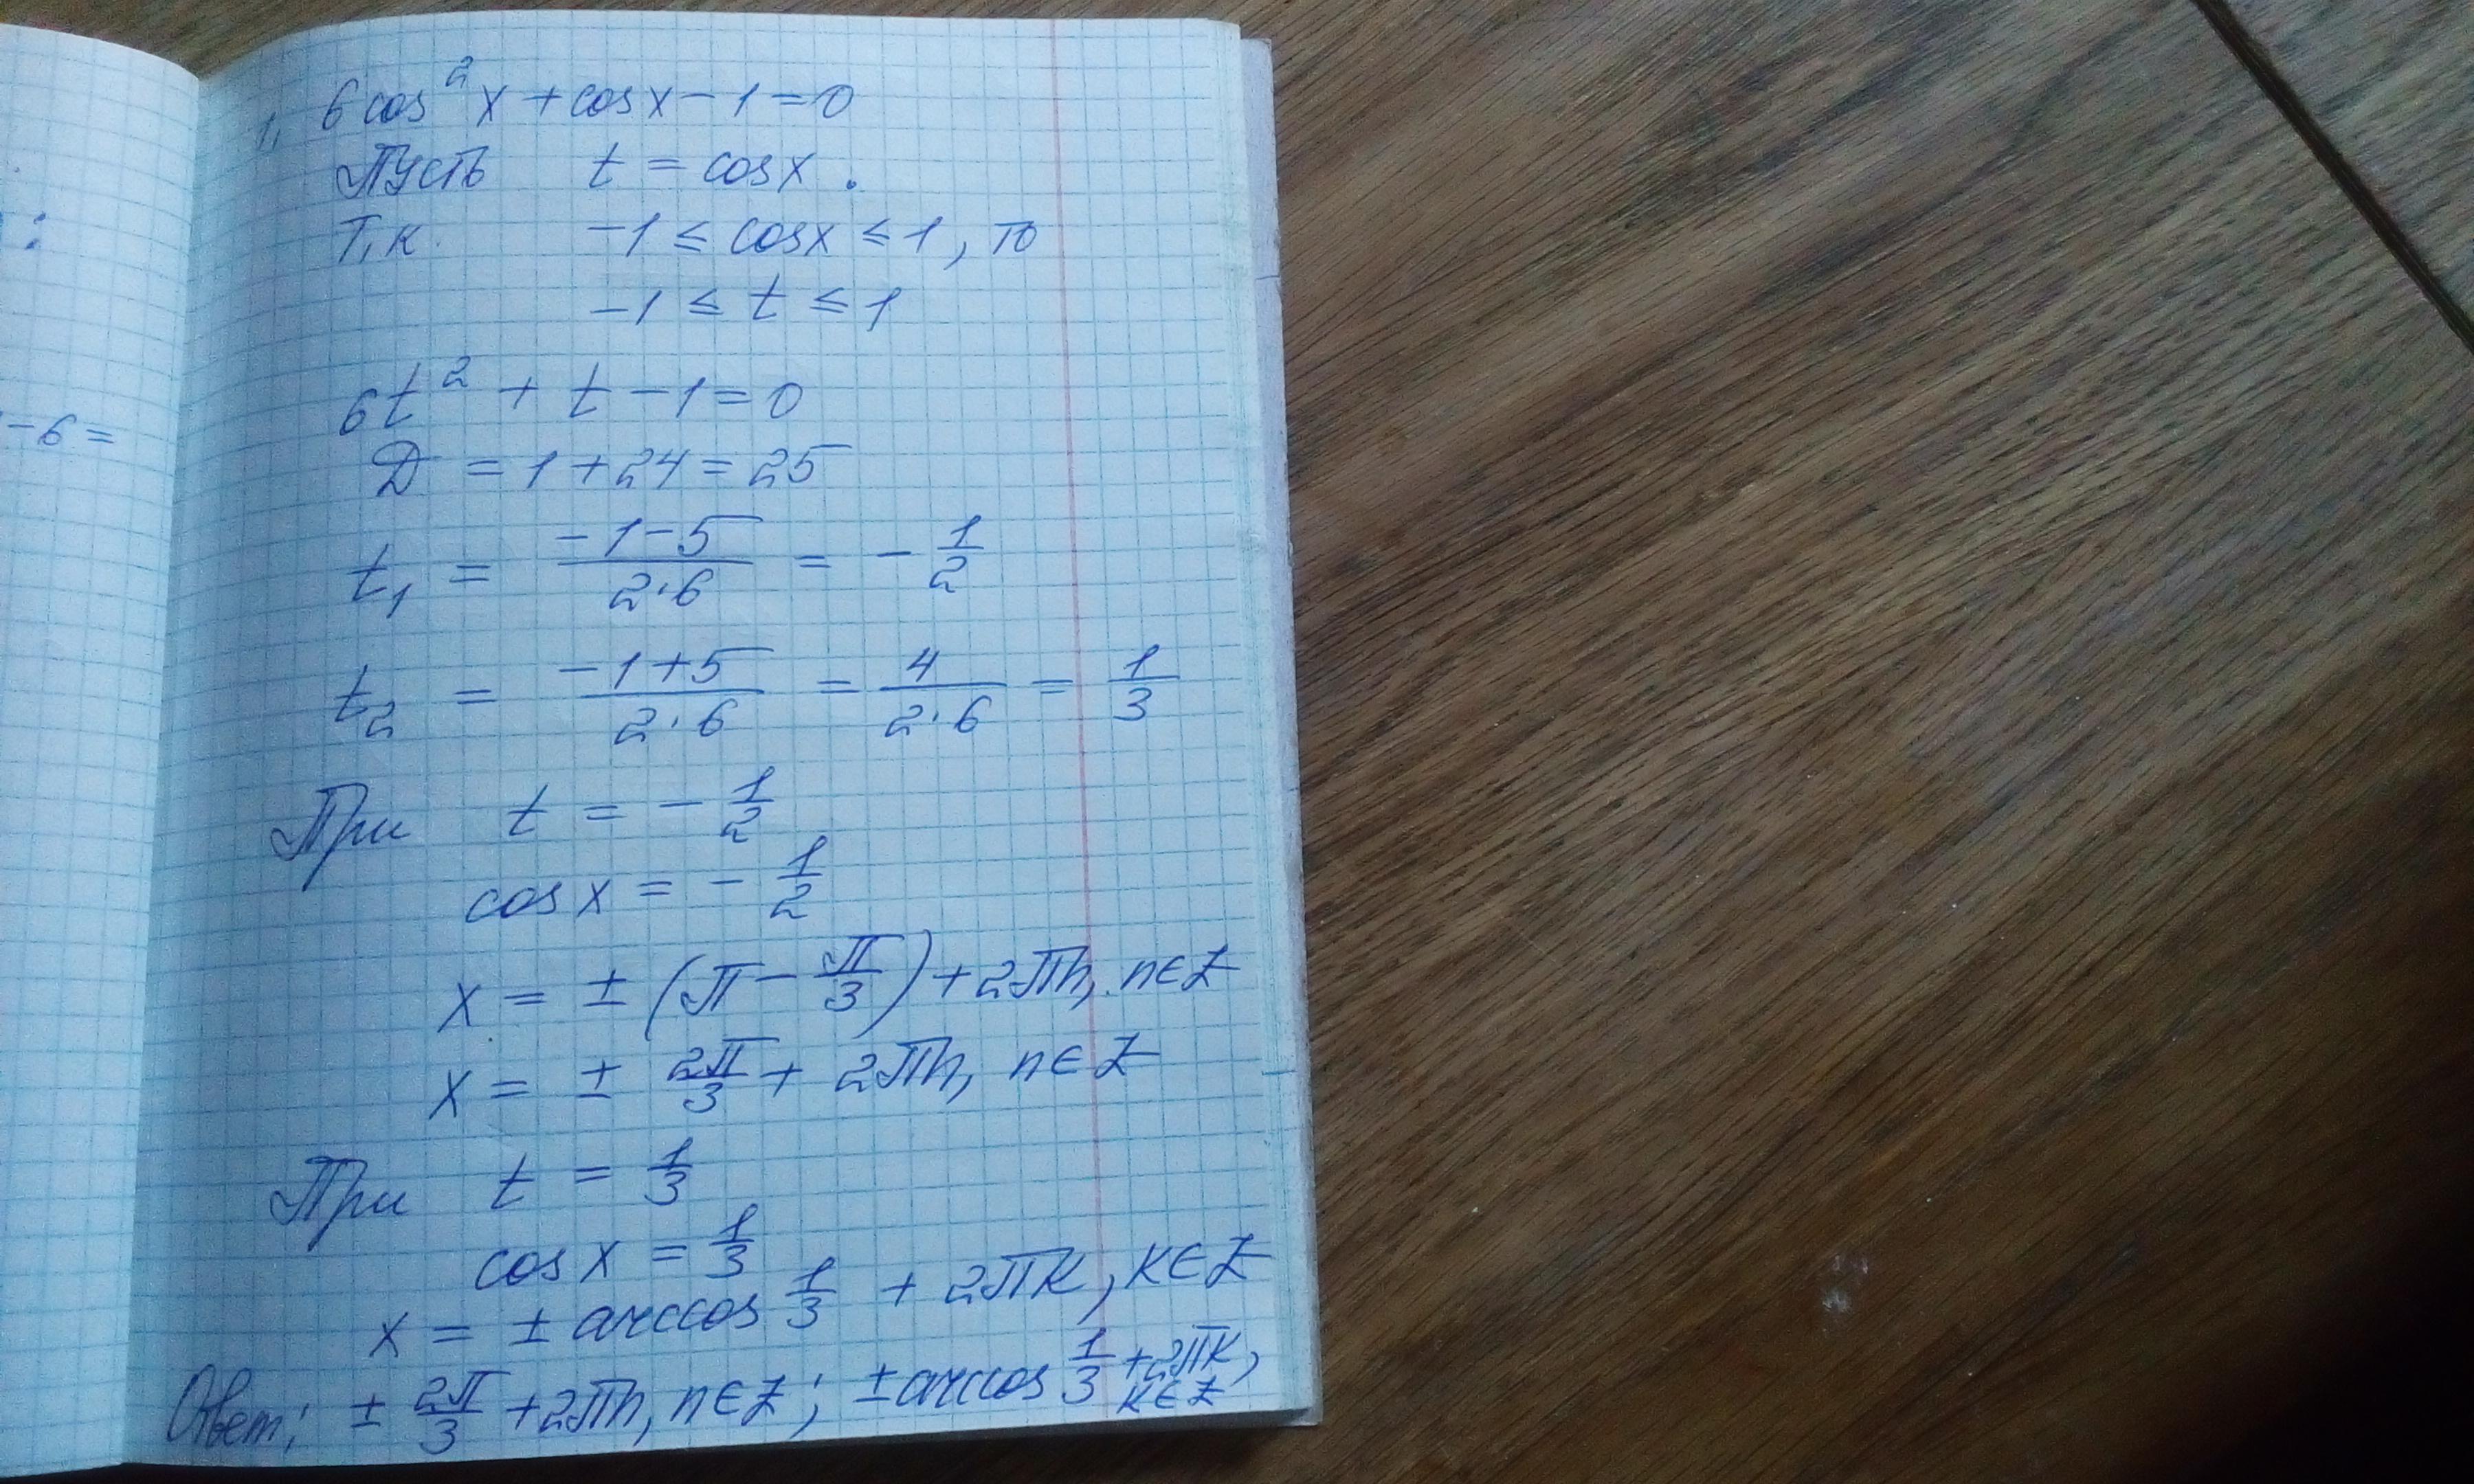 :
-6=
1. 6cos²x+cosx-1=0
Пусть t=cosx.
Т.к. -1≤cosx≤1, то
-1≤t≤1
6t²+t-1=0
Д=1+24=25
t₁=(-1-5)/(2·6)=-1/2
t₂=(-1+5)/(2·6)=4/(2·6)=1/3
При t=-1/2
cosx=-1/2
x=±(π-π/3)+2πn, n∈Z
x=±2π/3+2πn, n∈Z
При t=1/3
cosx=1/3
x=±arccos1/3+2πk, k∈Z
Ответ: ±2π/3+2πn, n∈Z; ±arccos1/3+2πk,
k∈Z